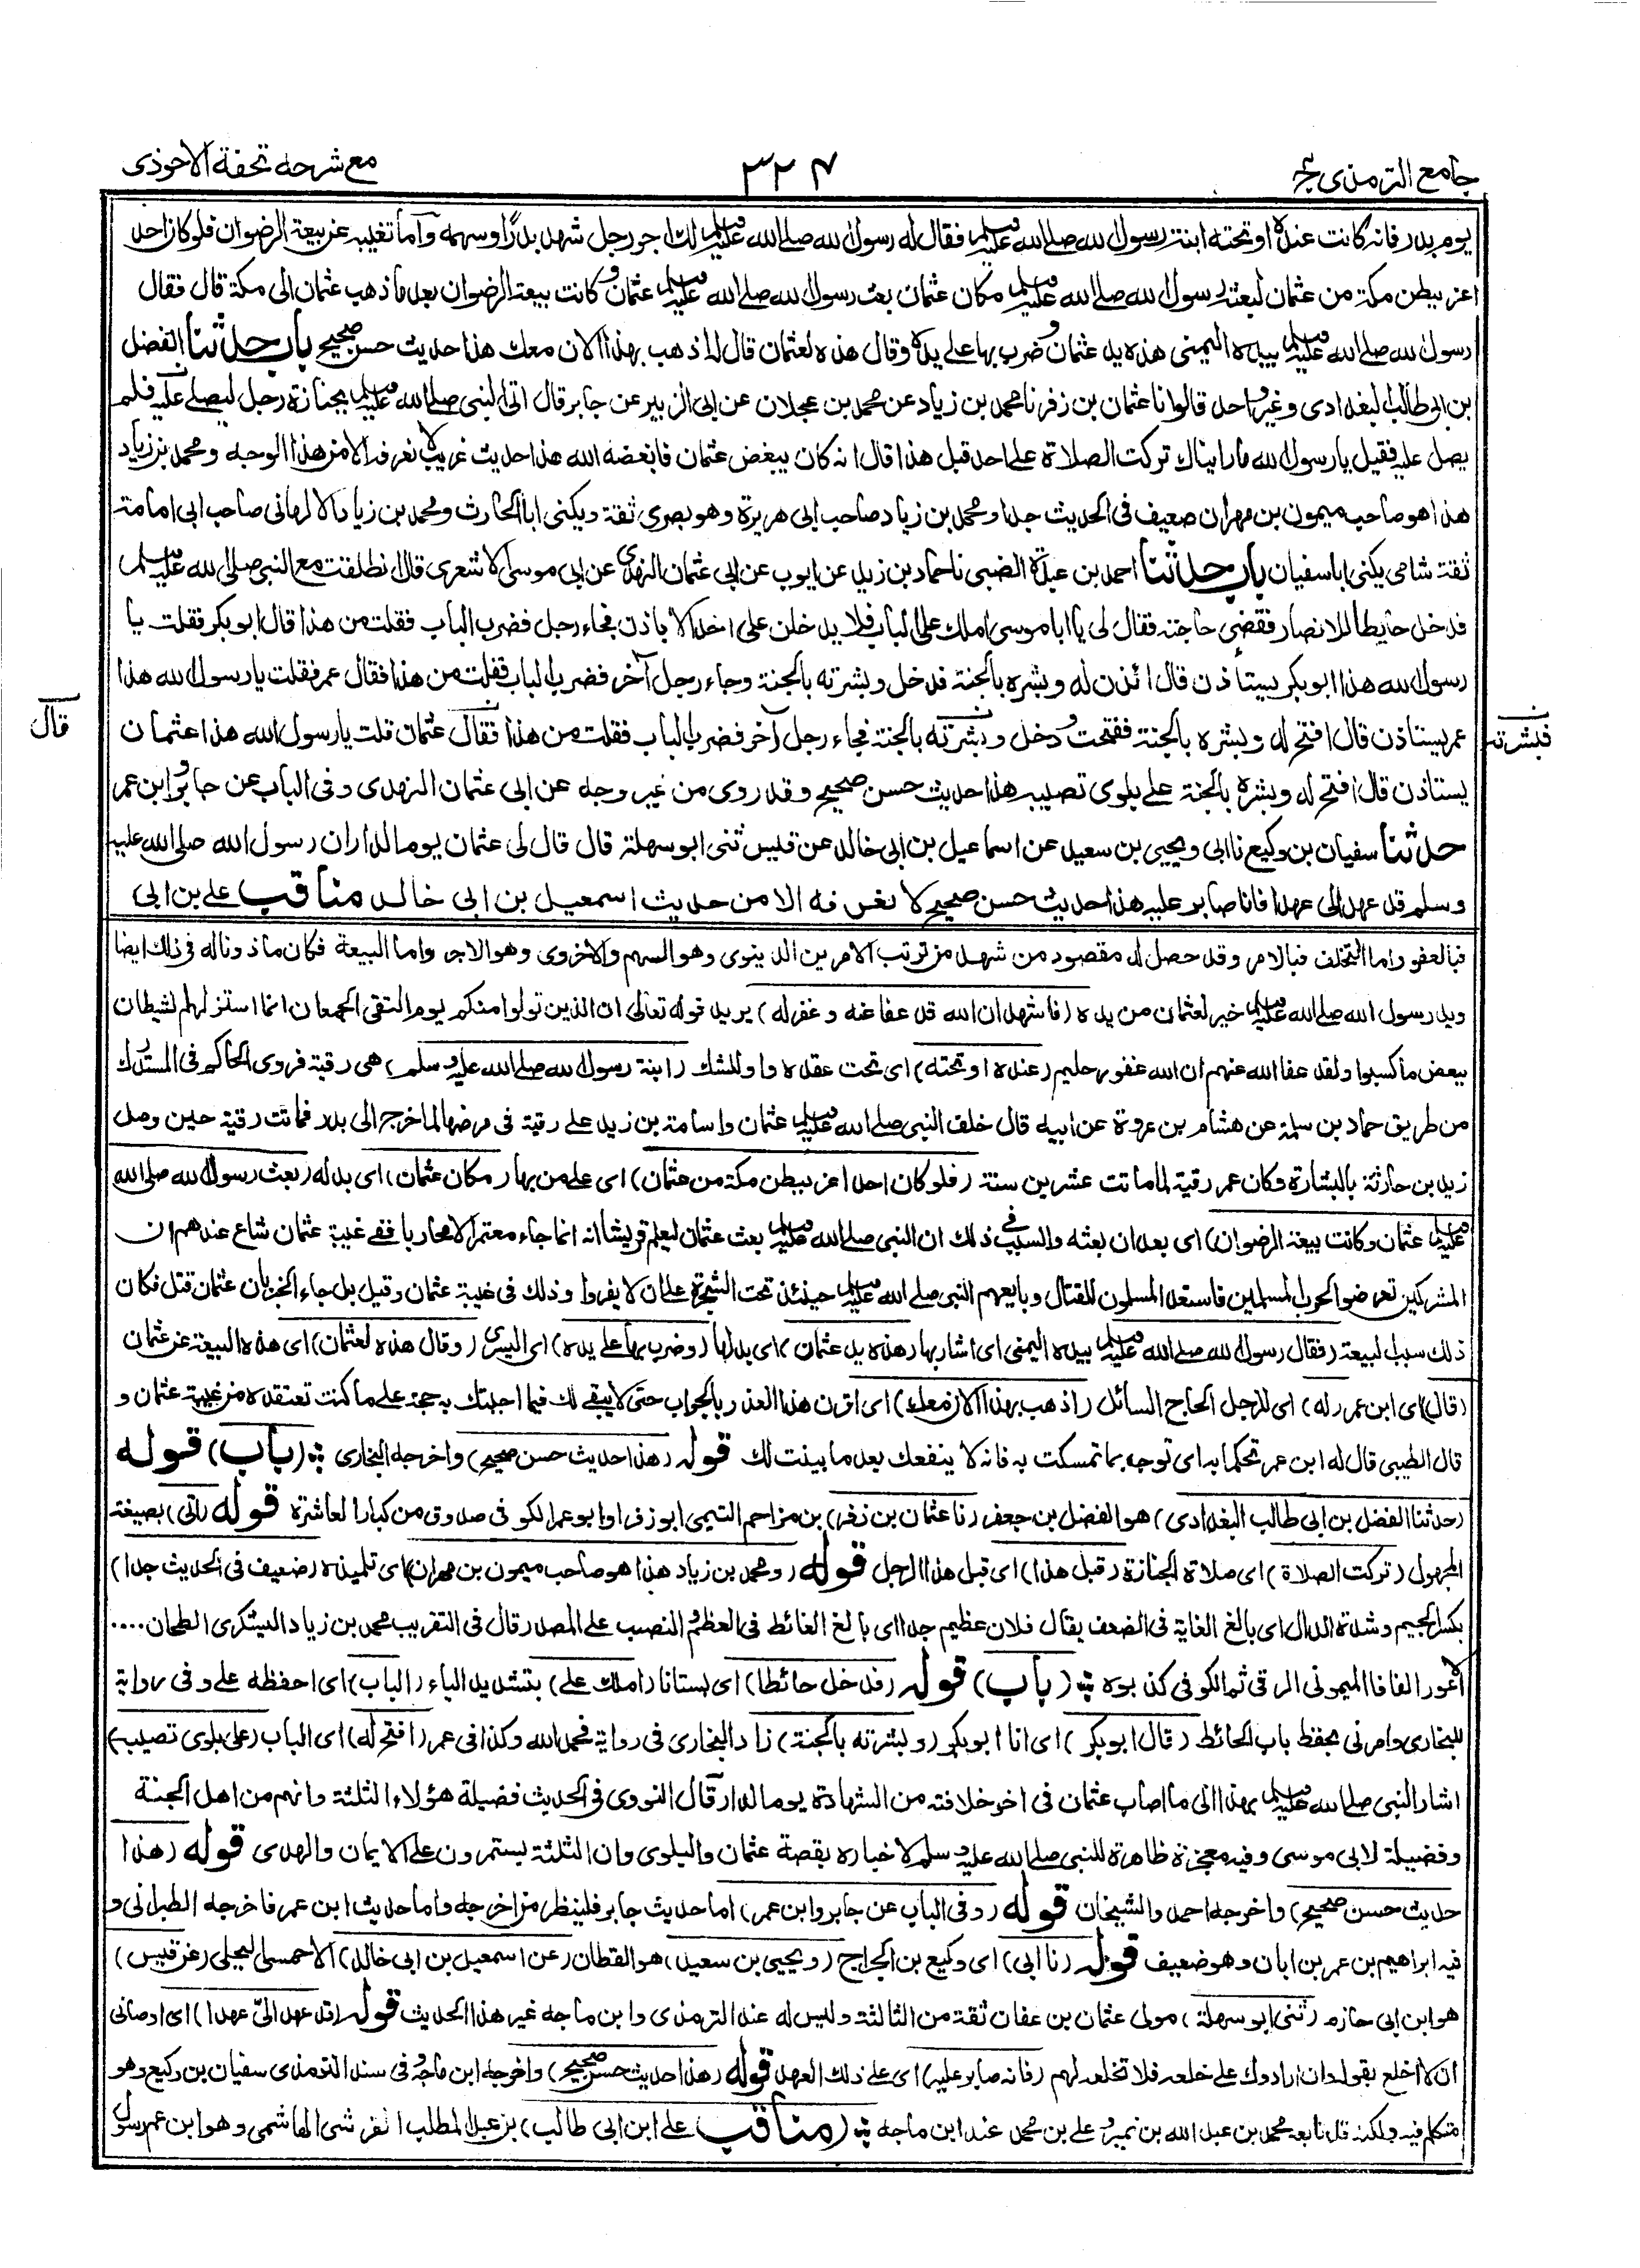 جامع الترمذى ج٤
٣٢٤
مع شرحه تحفة الاحوذى
يوم بدر فانه كانت عنده او تحته ابنة رسول الله صلى الله عليه وسلم فقال له رسول الله صلى الله عليه وسلم لك اجر رجل شهد بدرًا وسهمه وأما تغيبه عن بيعة الرضوان فلو كان احد
اعز ببطن مكة من عثمان لبعثه رسول الله صلى الله عليه وسلم مكان عثمان بعث رسول الله صلى الله عليه وسلم عثمان وكانت بيعة الرضوان بعد ما ذهب عثمان الى مكة قال فقال
رسول الله صلى الله عليه وسلم بيده اليمنى هذه يد عثمان وضرب بها على يده وقال هذه لعثمان قال له اذهب بهذا الان معك هذا حديث حسن صحيح باب حدثنا الفضل
بن ابى طالب البغدادى وغير واحد قالوا نا عثمان بن زفر نا محمد بن زياد عن محمد بن عجلان عن ابى الزبير عن جابر قال اتى النبى صلى الله عليه وسلم بجنازة رجل ليصلى عليه فلم
يصل عليه فقيل يا رسول الله ما رايناك تركت الصلاة على احد قبل هذا قال انه كان يبغض عثمان فابغضه الله هذا حديث غريب لا نعرفه الا من هذا الوجه ومحمد بن زياد
هذا هو صاحب ميمون بن مهران ضعيف فى الحديث جدا ومحمد بن زياد صاحب ابى هريرة وهو بصرى ثقة ويكنى ابا الحارث ومحمد بن زياد الالهانى صاحب ابى امامة
ثقة شامى يكنى ابا سفيان باب حدثنا احمد بن عبدة الضبى نا حماد بن زيد عن ايوب عن ابى عثمان النهدى عن ابى موسى الاشعرى قال انطلقت مع النبى صلى الله عليه وسلم
فدخل حايطا للانصار فقضى حاجته فقال لى يا ابا موسى املك على الباب فلا يدخلن على احد الا باذن فجاء رجل فضرب الباب فقلت من هذا قال ابو بكر فقلت يا
رسول الله هذا ابو بكر يستأذن قال ائذن له وبشره بالجنة فدخل وبشرته بالجنة وجاء رجل آخر فضرب الباب فقلت من هذا فقال عمر فقلت يا رسول الله هذا
عمر يستاذن قال افتح له وبشره بالجنة ففتحت ودخل وبشرته بالجنة فجاء رجل آخر فضرب الباب فقلت من هذا فقال عثمان قلت يا رسول الله هذا عثمان
فبشرته
قال
يستاذن قال افتح له وبشره بالجنة على بلوى تصيبه هذا حديث حسن صحيح وقد روى من غير وجه عن ابى عثمان النهدى وفى الباب عن جابر وابن عمر
حدثنا سفيان بن وكيع نا ابى ويحيى بن سعيد عن اسماعيل بن ابى خالد عن قيس ثنى ابو سهلة قال قال لى عثمان يوم الدار ان رسول الله صلى الله عليه
وسلم قد عهد الى عهدا فانا صابر عليه هذا حديث حسن صحيح لا نعرفه الا من حديث اسمعيل بن ابى خالد مناقب على بن ابى
فبالعفو واما التخلف فبالامر وقد حصل له مقصود من شهد من ترتب الامرين الدينوى وهو السهم والاخروى وهو الاجر واما البيعة فكان ماذونا له فى ذلك ايضا
ويد رسول الله صلى الله عليه وسلم خير لعثمان من يده (فاشهد ان الله قد عفا عنه وغفر له) يريد قوله تعالى ان الذين تولوا منكم يوم التقى الجمعان انما استزلهم الشيطان
ببعض ما كسبوا ولقد عفا الله عنهم ان الله غفور حليم (عنده او تحته) اى تحت عقده واو للشك (ابنة رسول الله صلى الله عليه وسلم) هى رقية فروى الحاكم فى المستدرك
من طريق حماد بن سلمة عن هشام بن عروة عن ابيه قال خلف النبى صلى الله عليه وسلم عثمان واسامة بن زيد على رقية فى مرضها لما خرج الى بدر فماتت رقية حين وصل
زيد بن حارثة بالبشارة وكان عمر رقية لما ماتت عشرين سنة (فلو كان احد اعز ببطن مكة من عثمان) اى على من بها (مكان عثمان) اى بدله (بعث رسول الله صلى الله
عليه وسلم عثمان وكانت بيعة الرضوان) اى بعد ان بعثه والسبب فى ذلك ان النبى صلى الله عليه وسلم بعث عثمان ليعلم قريشا انه انما جاء معتمرا لا محاربا ففى غيبة عثمان شاع عندهم ان
المشركين تعرضوا لحرب المسلمين فاستعد المسلمون للقتال وبايعهم النبى صلى الله عليه وسلم حينئذ تحت الشجرة على ان لا يفروا وذلك فى غيبة عثمان وقيل بل جاء الخبر بان عثمان قتل فكان
ذلك سبب البيعة (فقال رسول الله صلى الله عليه وسلم بيده اليمنى اى اشار بها (هذه يد عثمان) اى بدلها (وضرب بها على يده) اى اليسرى (وقال هذه لعثمان) اى هذه البيعة عن عثمان
(قال) اى ابن عمر (له) اى للرجل الحاج السائل (اذهب بهذا الان معك) اى اقرن هذا العذر بالجواب حتى لا يبقى لك فيما اجبتك به حجة على ما كنت تعتقده من غيبة عثمان و
قال الطيبى قال له ابن عمر تحكما به اى توجه بما تمسكت به فانه لا ينفعك بعد ما بينت لك قوله (هذا حديث حسن صحيح) واخرجه البخارى (باب) قوله
(حدثنا الفضل بن ابى طالب البغدادى) هو الفضل بن جعفر (نا عثمان بن زفر) بن مزاحم التيمى ابو زفر او ابو عمر الكوفى صدوق من كبار العاشرة قوله (اتى) بصيغة
المجهول (تركت الصلاة) اى صلاة الجنازة (قبل هذا) اى قبل هذا الرجل قوله (ومحمد بن زياد هذا هو صاحب ميمون بن مهران) اى تلميذه (ضعيف فى الحديث جدا)
بكسر الجيم وشدة الدال اى بالغ الغاية فى الضعف يقال فلان عظيم جدا اى بالغ الغائط فى العظم والنصب على المصدر قال فى التقريب محمد بن زياد اليشكرى الطحان ....
الاعور الفافا الميمونى الرقى ثم الكوفى كذبوه (باب) قوله (فدخل حائطا) اى بستانا (املك على) بتشديد الياء (الباب) اى احفظه على وفى رواية
للبخارى وامرنى بحفظ باب الحائط (قال ابو بكر) اى انا ابو بكر (وبشرته بالجنة) زاد البخارى فى رواية فحمد الله وكذا فى عمر (افتح له) اى الباب (على بلوى تصيبه)
اشار النبى صلى الله عليه وسلم بهذا الى ما اصاب عثمان فى اخر خلافته من الشهادة يوم الدار قال النووى فى الحديث فضيلة هؤلاء الثلثة وانهم من اهل الجنة
وفضيلة لابى موسى وفيه معجزة ظاهرة للنبى صلى الله عليه وسلم لاخباره بقصة عثمان والبلوى وان الثلثة يستمرون على الايمان والهدى قوله (هذا
حديث حسن صحيح) واخرجه احمد والشيخان قوله (وفى الباب عن جابر وابن عمر) اما حديث جابر فلينظر من اخرجه واما حديث ابن عمر فاخرجه الطبرانى و
فيه ابراهيم بن عمر بن ابان وهو ضعيف قوله (نا ابى) اى وكيع بن الجراح (ويحيى بن سعيد) هو القطان (عن اسمعيل بن ابى خالد) الاحمسى البجلى (عن قيس)
هو ابن ابى حازم (ثنى ابو سهلة) مولى عثمان بن عفان ثقة من الثالثة وليس له عند الترمذى وابن ماجه غير هذا الحديث قوله (قد عهد الىّ عهدا) اى اوصانى
ان لا اخلع بقوله وان ارادوك على خلعه فلا تخلعه لهم (فانه صابر عليه) اى على ذلك العهد قوله (هذا حديث حسن صحيح) واخرجه ابن ماجه وفى سند الترمذى سفيان بن وكيع وهو
متكلم فيه ولكنه قد تابعه محمد بن عبد الله بن نمير وعلى بن محمد عند ابن ماجه (مناقب على ابن ابى طالب) بن عبد المطلب القرشى الهاشمى وهو ابن عم رسول